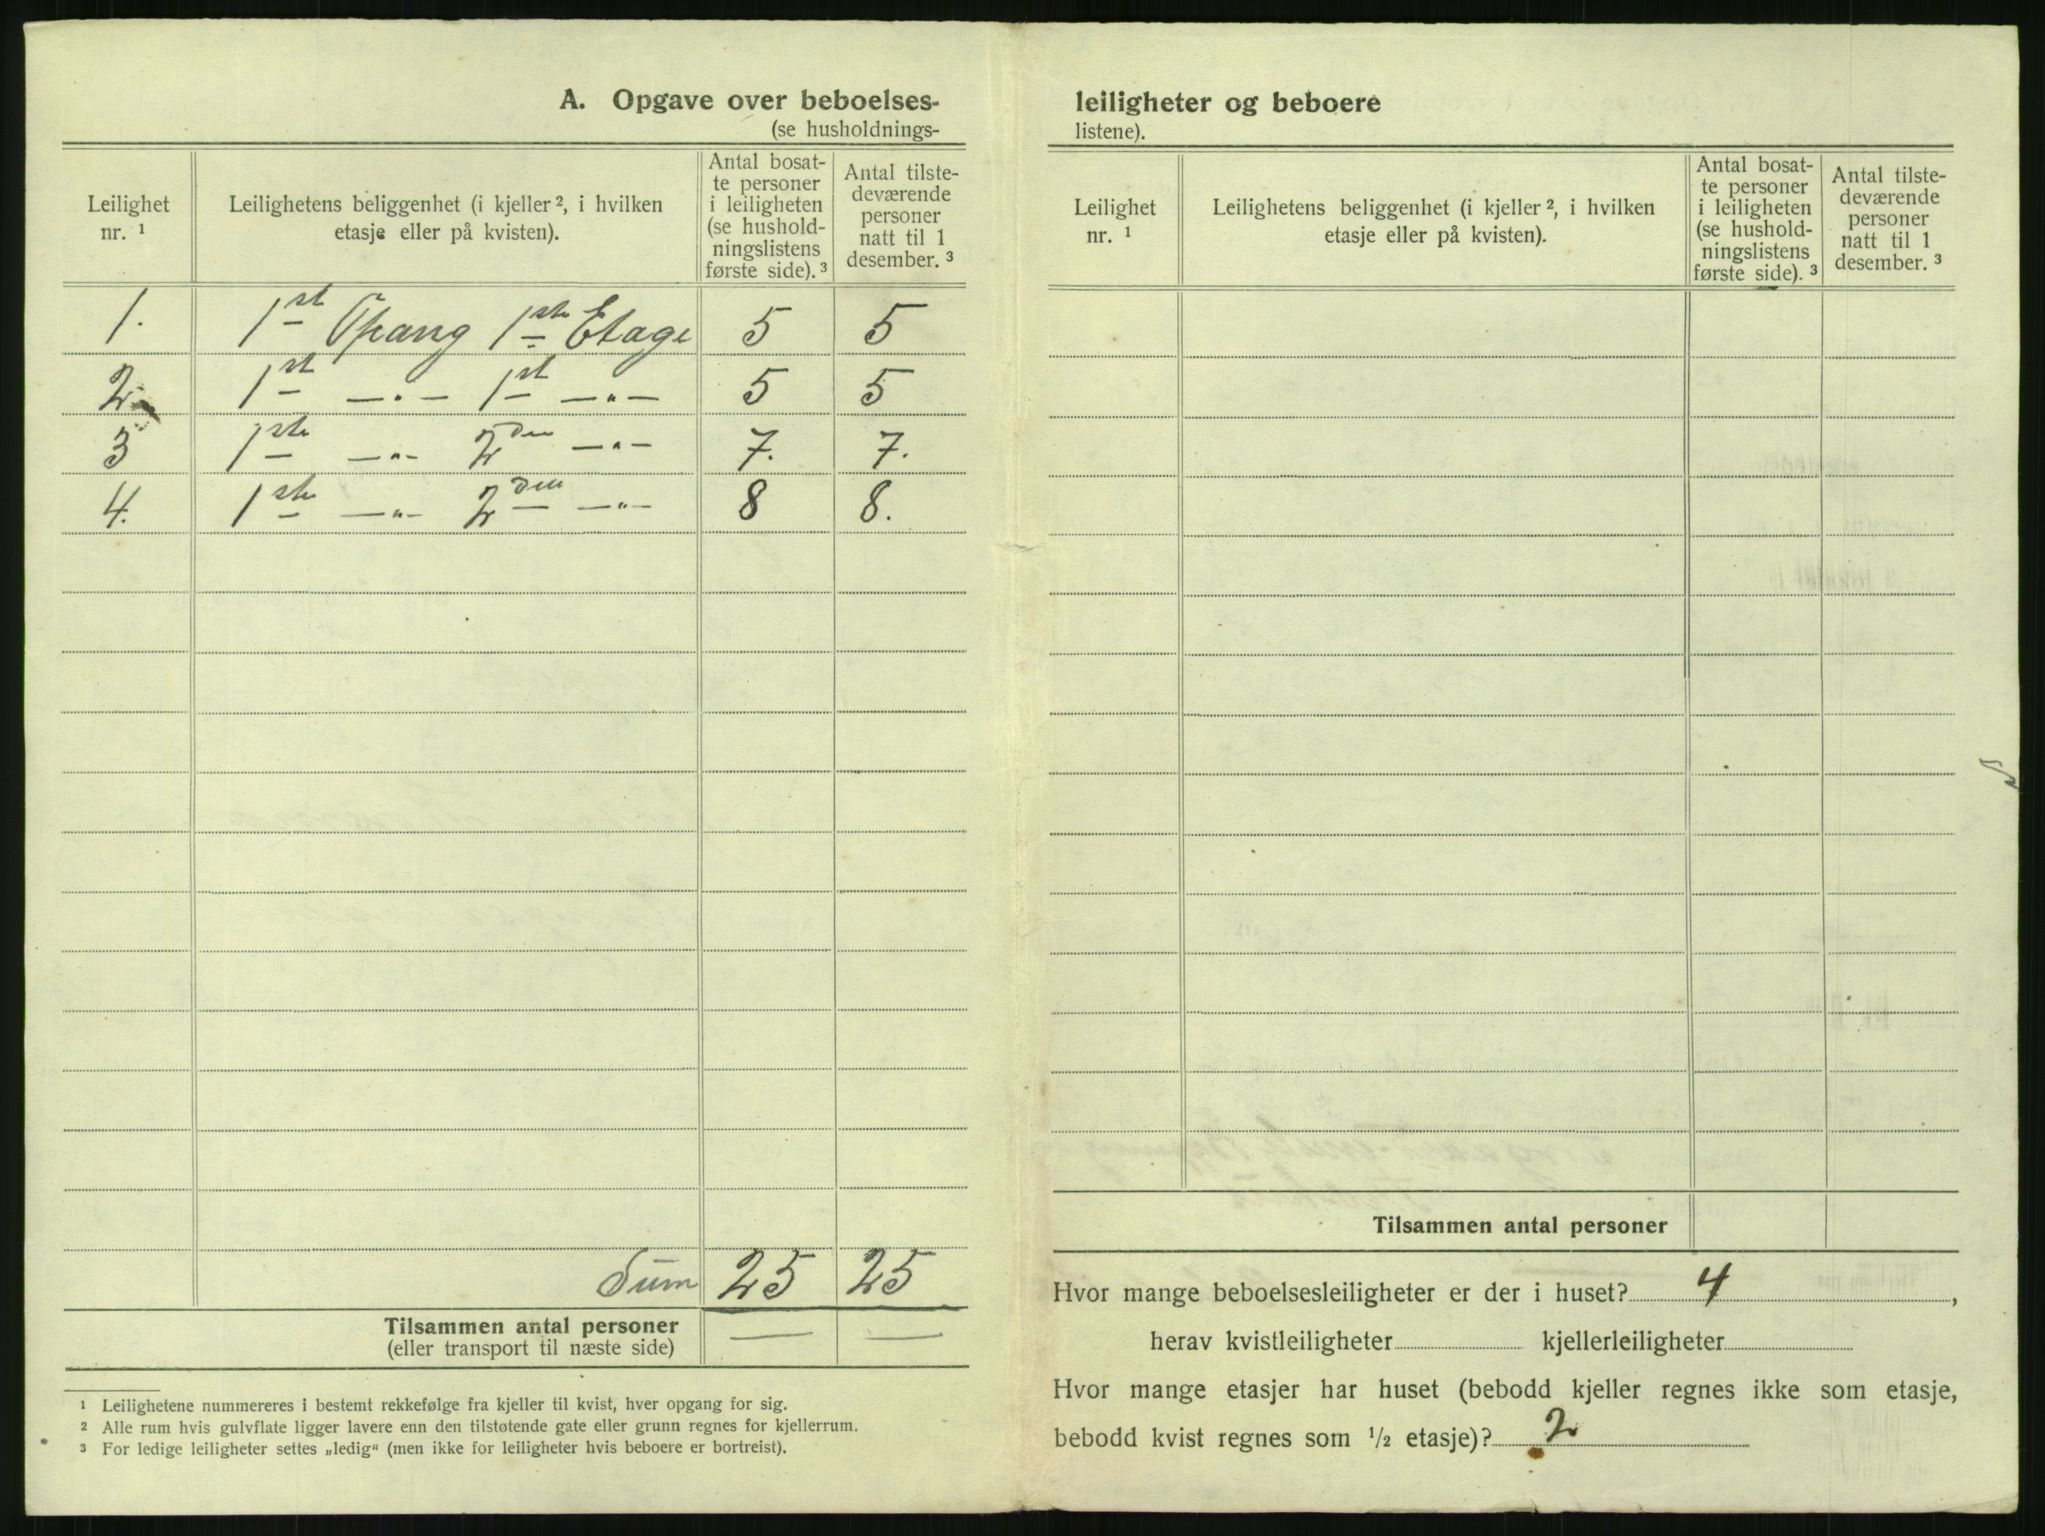 A. Opgave over beboelses-
(se husholdnings-
Leilighet
nr. ¹
Leilighetens beliggenhet (i kjeller ², i hvilken
etasje eller på kvisten).
Antal bosat-
te personer
i leiligheten
(se hushold-
ningslistens
første side). ³
Antal tilste-
deværende
personer
natt til 1
desember. ³
1. 1ste Opgang 1ste Etage 5 5
2. 1st —„— 1st —„— 5 5
3 1ste —„— 2den —„— 7. 7.
4. 1ste —„— 2den —„— 8 8.
Sum 25 25
Tilsammen antal personer — —
(eller transport til næste side)
¹ Leilighetene nummereres i bestemt rekkefølge fra kjeller til kvist, hver opgang for sig.
² Alle rum hvis gulvflate ligger lavere enn den tilstøtende gate eller grunn regnes for kjellerrum.
³ For ledige leiligheter settes „ledig“ (men ikke for leiligheter hvis beboere er bortreist).
leiligheter og beboere
listene).
Leilighet
nr. ¹
Leilighetens beliggenhet (i kjeller ², i hvilken
etasje eller på kvisten).
Antal bosat-
te personer
i leiligheten
(se hushold-
ningslistens
første side). ³
Antal tilste-
deværende
personer
natt til 1
desember. ³
Tilsammen antal personer
Hvor mange beboelsesleiligheter er der i huset? 4 ,
herav kvistleiligheter kjellerleiligheter
Hvor mange etasjer har huset (bebodd kjeller regnes ikke som etasje,
bebodd kvist regnes som ½ etasje)? 2